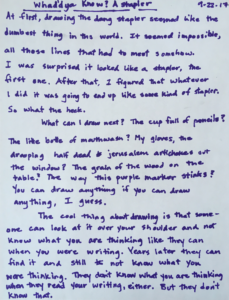 Whad'dya Know? A stapler
9-22-17
At first, drawing the dang stapler seemed like the
dumbest thing in this world. It seemed impossible,
all those lines that had to meet somehow.
I was surprised it looked like a stapler, the
first one. After that, I figured that whatever
I did it was going to end up like some kind of stapler.
So what the heck.
What can I draw next? The cup full of pencils?
The little bottle of mouthwash? My gloves, the
drooping half dead jerusalem artichokes out
the window? The grain of the wood on the
table? The way this purple marker stinks?
You can draw anything if you can draw
anything, I guess.
The cool thing about drawing is that some-
one can look at it over your shoulder and not
know what you are thinking like they can
when you were writing. Years later they can
find it and still not know what you
were thinking. They don't know what you are thinking
when they read your writing, either. But they don't
know that.